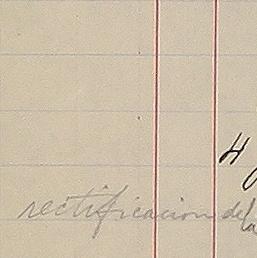 H
rectificacion de la